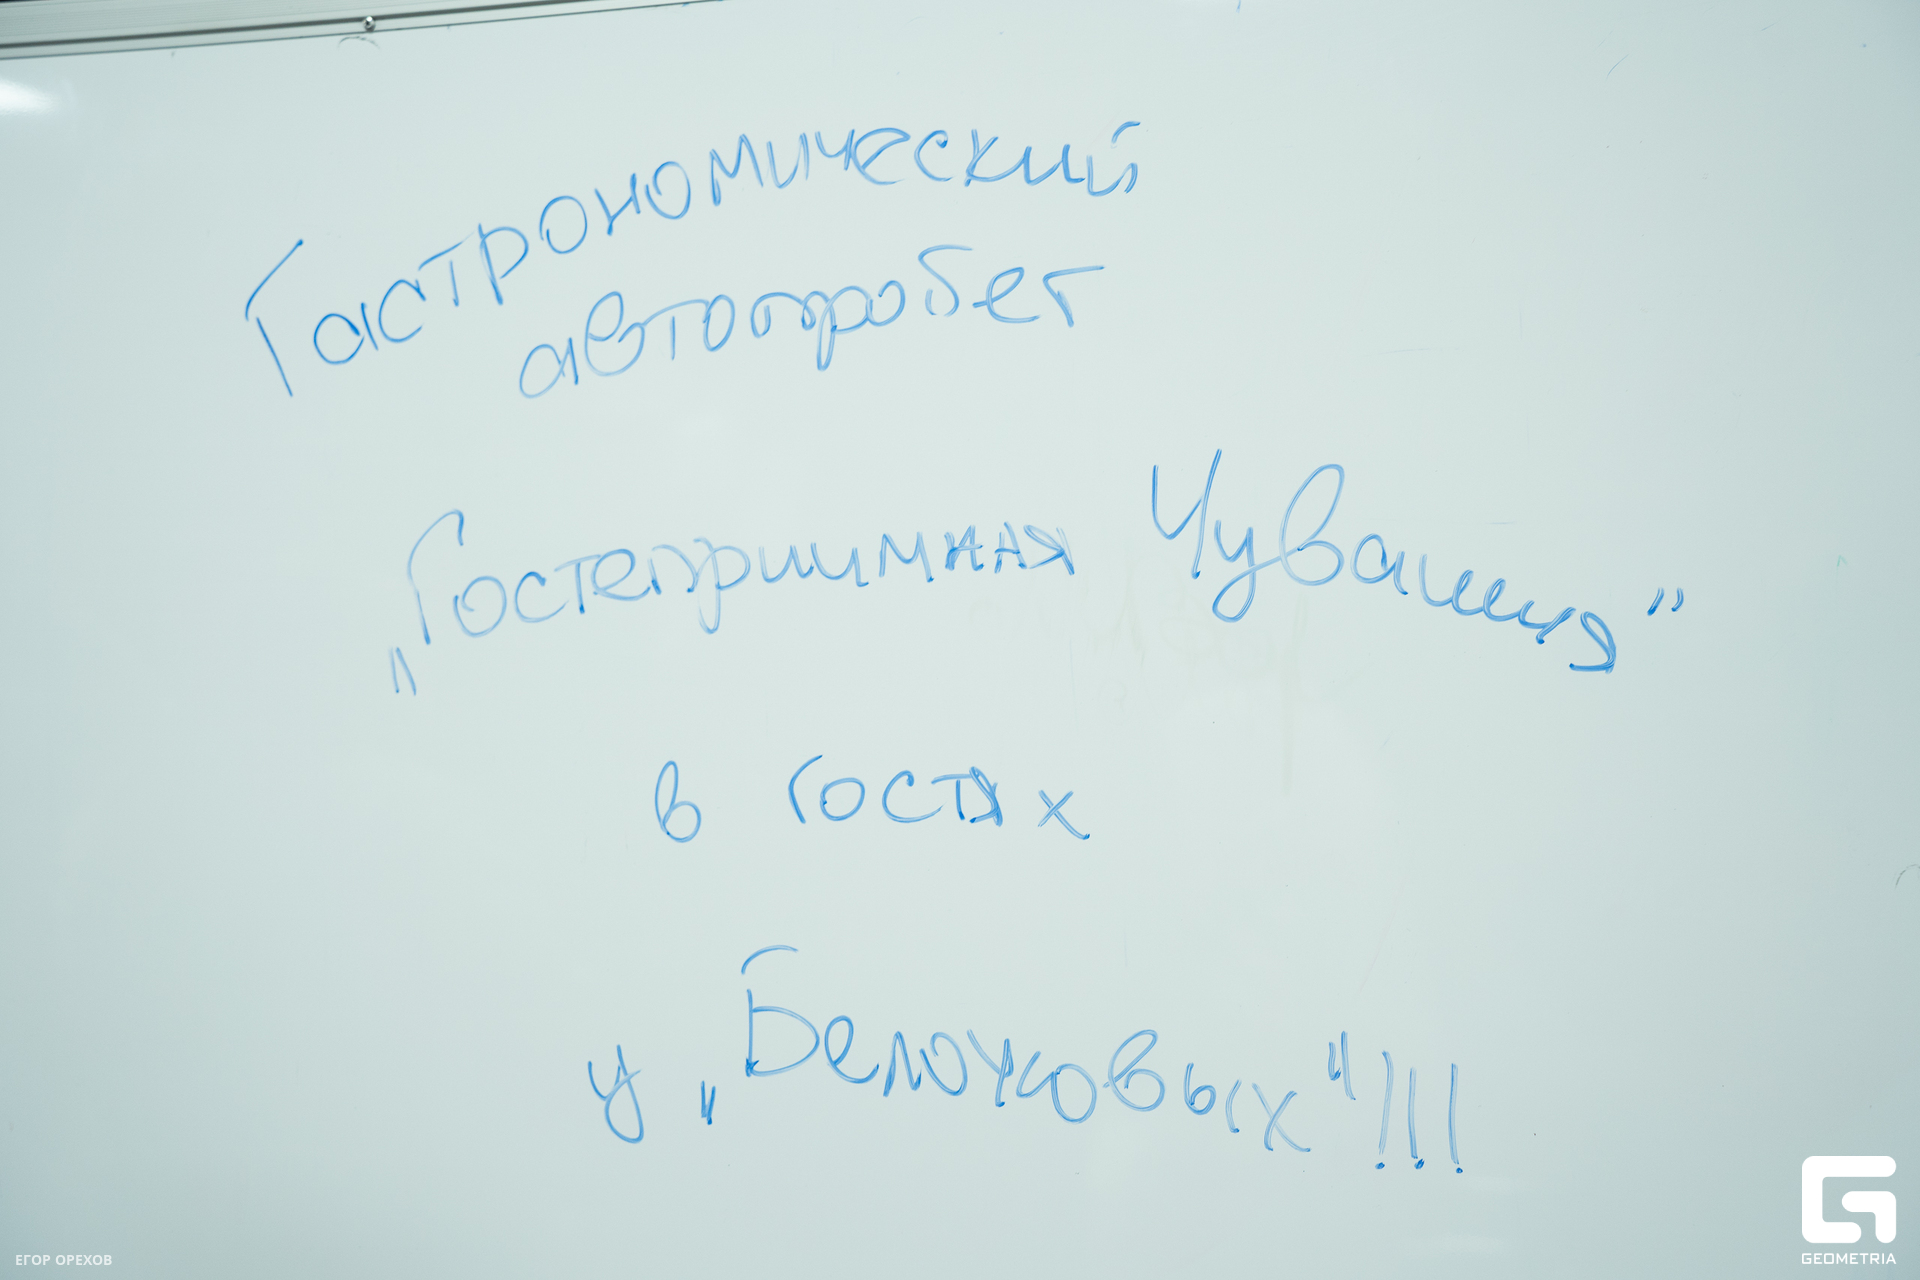 Гастрономический
автопробег
„Гостеприимная Чувашия"
в гостях
у „Белоусовых"!!!
ЕГОР ОРЕХОВ
GEOMETRIA